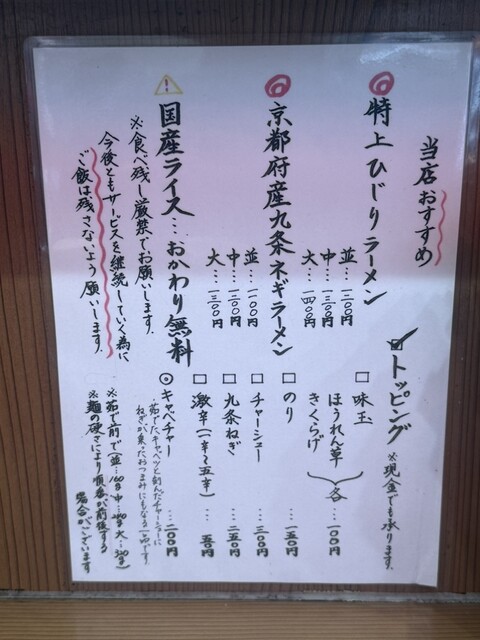 当店おすすめ
特上ひじりラーメン
並…一二〇〇円
中…一三〇〇円
大…一四〇〇円
京都府産九条ネギラーメン
並…一一〇〇円
中…一二〇〇円
大…一三〇〇円
国産ライス…おかわり無料
※食べ残し厳禁でお願いします。
今後ともサービスを継続していく為に
ご飯は残さないよう願いします。
トッピング ※現金でも承ります。
味玉
ほうれん草 各…一〇〇円
きくらげ
のり …一五〇円
チャーシュー …三〇〇円
九条ねぎ …二五〇円
激辛(一辛~五辛) …五〇円
キャベチャー …二〇〇円
・茹でたキャベツと刻んだチャーシューに
ねぎが乗ったおつまみにもなる一品です。
※茹で前で(並…160g 中…240g 大…320g)
※麺の硬さにより順番が前後する
場合がございます